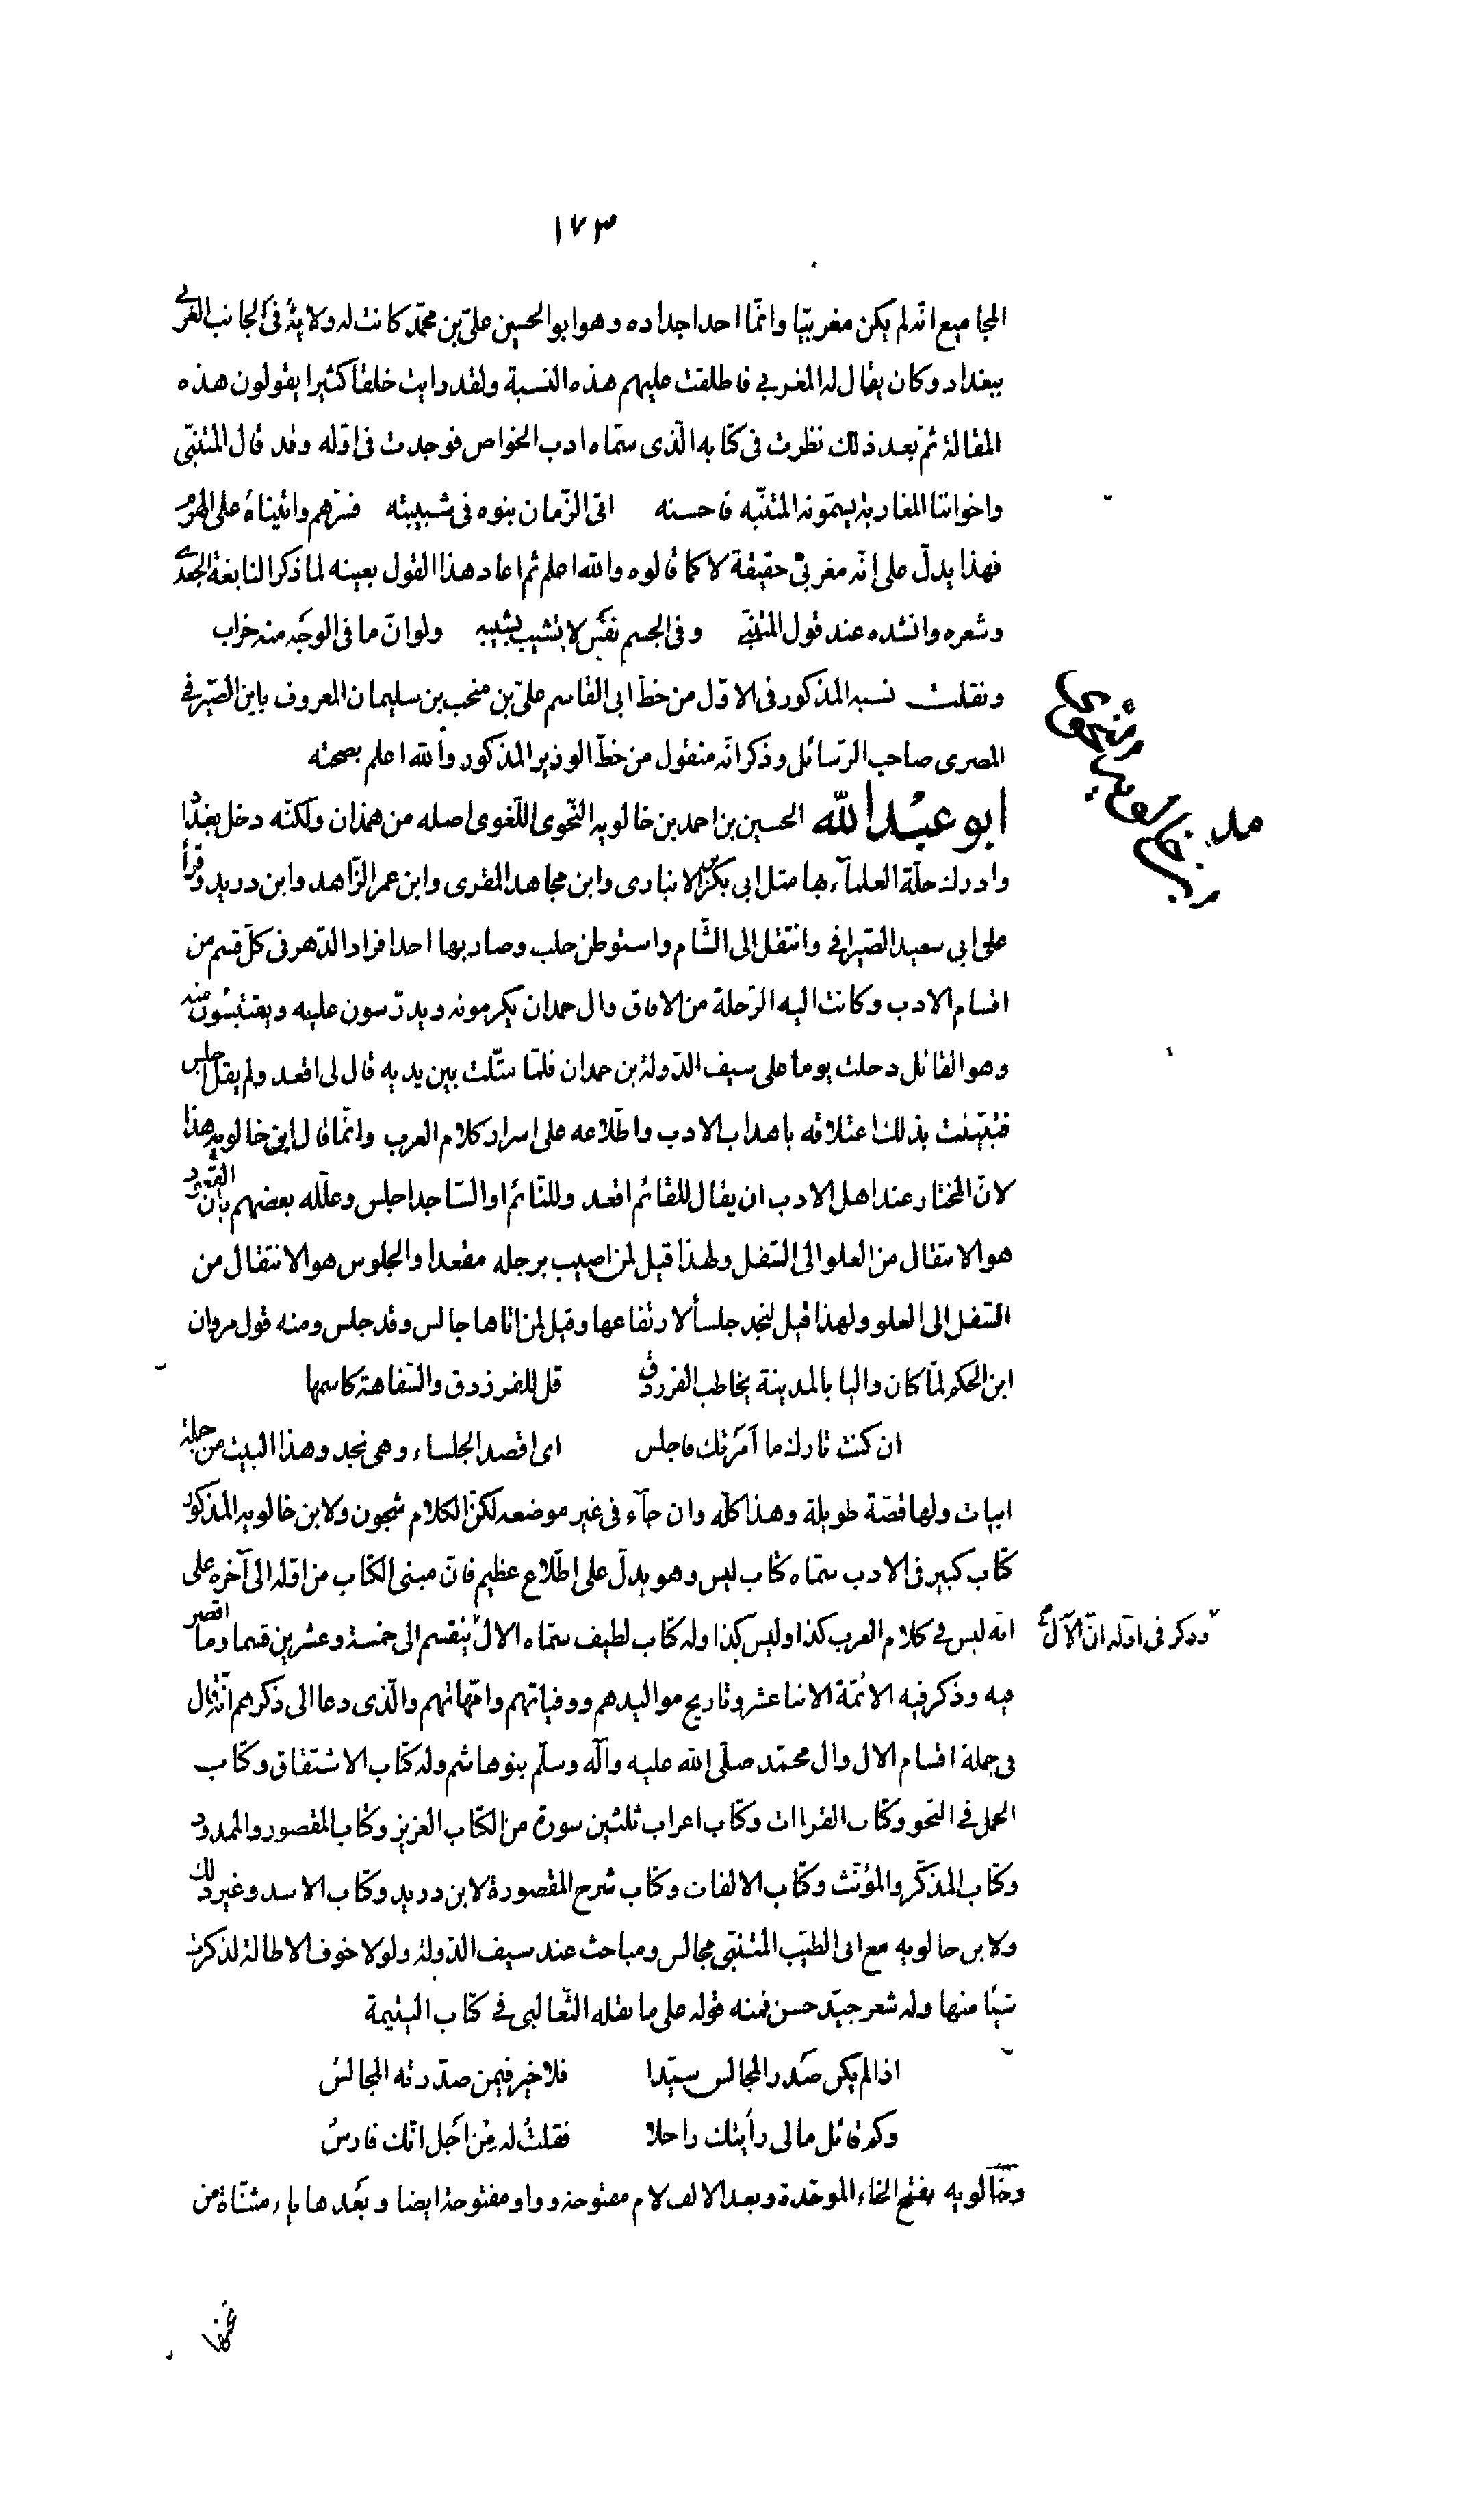 ١٧٣
المجاميع انه لم يكن مغربيّا وانّما احد اجداده وهو ابو الحسين علىّ بن محمّد كانت له ولاية فى الجانب الغربى
ببغداد وكان يقال له المغربي فاطلقت عليهم هذه النسبة ولقد رايت خلقا كثيرا يقولون هذه
المقالة ثمّ بعد ذلك نظرت فى كتابه الّذى سمّاه ادب الخواص فوجدت فى اوّله وقد قال المتنبّى
واخواننا المغاربة يسمّونه المتنبّه فاحسنه اتى الزّمان بنوه فى شبيبته فسرّهم واتيناه على الهرم
فهذا يدلّ على انّه مغربىّ حقيقة لا كما قالوه والله اعلم ثم اعاد هذا القول بعينه لما ذكر النابغة الجعدى
وشعره وانشده عند قول المتنبّى وفى الجسم نفس لا تشيب بشيبه ولو انّ ما فى الوجه منه خراب
ونقلت نسبه المذكور فى الاوّل من خطّ ابى القاسم علىّ بن منجب بن سليمان المعروف بابن الصّيرفى
المصرى صاحب الرّسائل وذكر انّه منقول من خطّ الوزير المذكور والله اعلم بصحته
ابو عبد الله الحسين بن احمد بن خالويه النّحوى اللّغوى اصله من همذان ولكنّه دخل بغداد
وادرك جلّة العلمآء بها مثل ابى بكر بن الانبارى وابن مجاهد المقرى وابن عمر الزّاهد وابن دريد وقرأ
على ابى سعيد الصّيرافى وانتقل الى الشّام واستوطن حلب وصار بها احد افراد الدّهر فى كلّ قسم من
اقسام الادب وكانت اليه الرّحلة من الافاق وال حمدان يكرمونه ويدرّسون عليه ويقتبسون منه
وهو القائل دخلت يوما على سيف الدّولة بن حمدان فلمّا مثّلت بين يديه قال لى اقعد ولم يقل اجلس
فتبيّنت بذلك اعتلاقه باهداب الادب واطّلاعه على اسرار كلام العرب وانّما قال ابن خالويه هذا
لانّ المختار عند اهل الادب ان يقال للقائم اقعد وللنّائم او السّاجد اجلس وعلّله بعضهم بأن القعود
هو الانتقال من العلو الى السّفل ولهذا قيل لمن اصيب برجله مقعدا والجلوس هو الانتقال من
السّفل الى العلو ولهذا قيل لنجد جلسأ لارتفاعها وقيل لمن اتاها جالس وقد جلس ومنه قول مروان
ابن الحكم لمّا كان واليا بالمدينة يخاطب الفرزدق قل للفرزدق والسّفاهة كاسمها
ان كنت تارك ما آمرتك فاجلس اى اقصد الجلساء وهى نجد وهذا البيت من جملة
ابيات ولها قصّة طويلة وهذا كلّه وان جآء فى غير موضعه لكنّ الكلام شجون ولابن خالويه المذكور
كتاب كبير فى الادب سمّاه كتاب ليس وهو يدلّ على اطّلاع عظيم فانّ مبنى الكتاب من اوّله الى آخره على
انّه ليس فى كلام العرب كذا وليس كذا وله كتاب لطيف سمّاه الال ينقسم الى خمسة وعشرين قسما وما اقصر
وذكر فى اوّله انّ الآل
فيه وذكر فيه الائمّة الاثنا عشر وتاريخ مواليدهم ووفياتهم وامّهاتهم والّذى دعا الى ذكرهم انّه قال
فى جملة اقسام الال وال محمّد صلّى الله عليه وآله وسلّم بنو هاشم وله كتاب الاشتقاق وكتاب
الجمل فى النحو وكتاب القراات وكتاب اعراب ثلثين سورة من الكتاب العزيز وكتاب المقصور والممدود
وكتاب المذكّر والمؤنّث وكتاب الالفات وكتاب شرح المقصورة لابن دريد وكتاب الاسد وغير ذلك
ولابن خالويه مع ابى الطيّب المتنبّى مجالس ومباحث عند سيف الدّولة ولولا خوف الاطالة لذكرت
شيأ منها وله شعر جيّد حسن فمنه قوله على ما نقله الثّعالبى فى كتاب اليتيمة
اذا لم يكن صدر المجالس سيّدا فلا خير فيمن صدّرته المجالس
وكم قائل مالى رأيتك راجلا فقلت له من اجل انّك فارس
وخالويه بفتح الخاء الموحّدة وبعد الالف لام مفتوحة وواو مفتوحة ايضا وبعدها ياء مثنّاة من